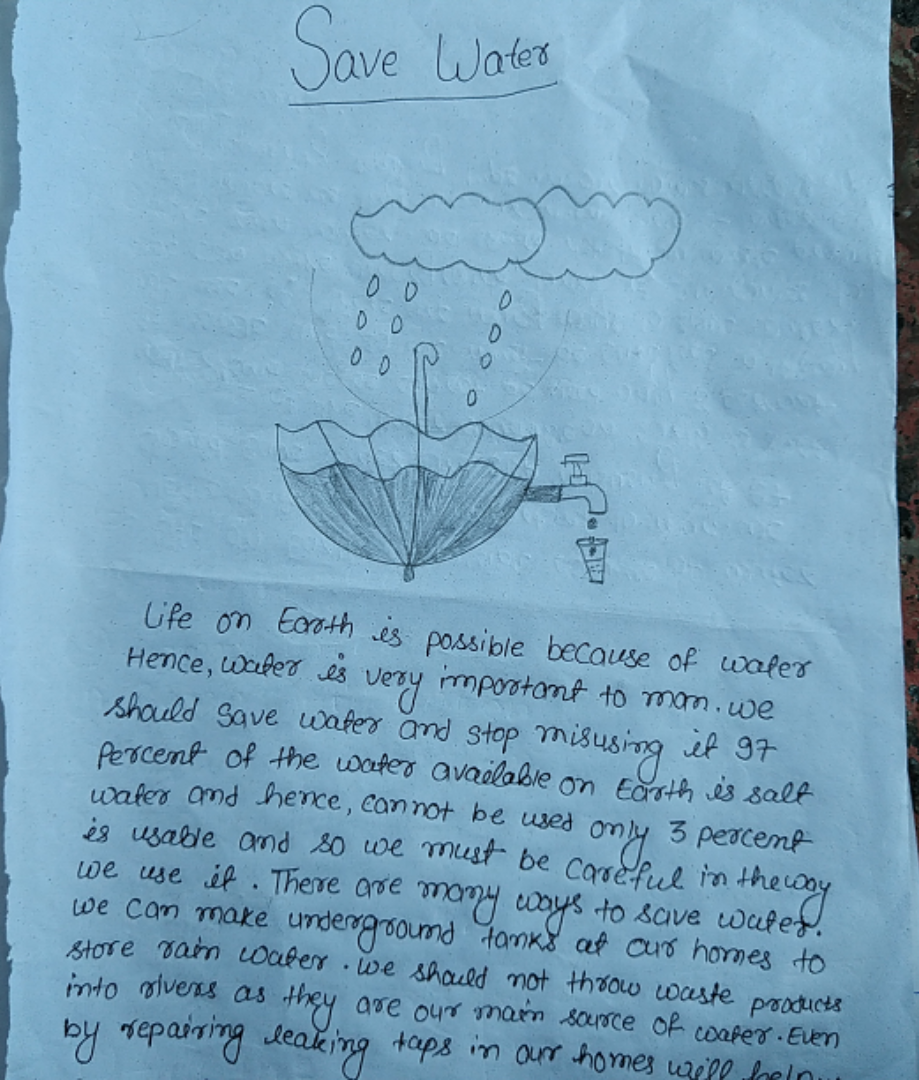 Save Water
Life on Earth is possible because of water
Hence, water is very important to man. we
should save water and stop misusing it 97
Percent of the water available on Earth is salt
water and hence, cannot be used only 3 percent
is usable and so we must be careful in the way
we use it. There are many ways to save water.
we can make underground tanks at our homes to
store rain water. we should not throw waste products
into rivers as they are our main source of water. Even
by repairing leaking taps in our homes will help